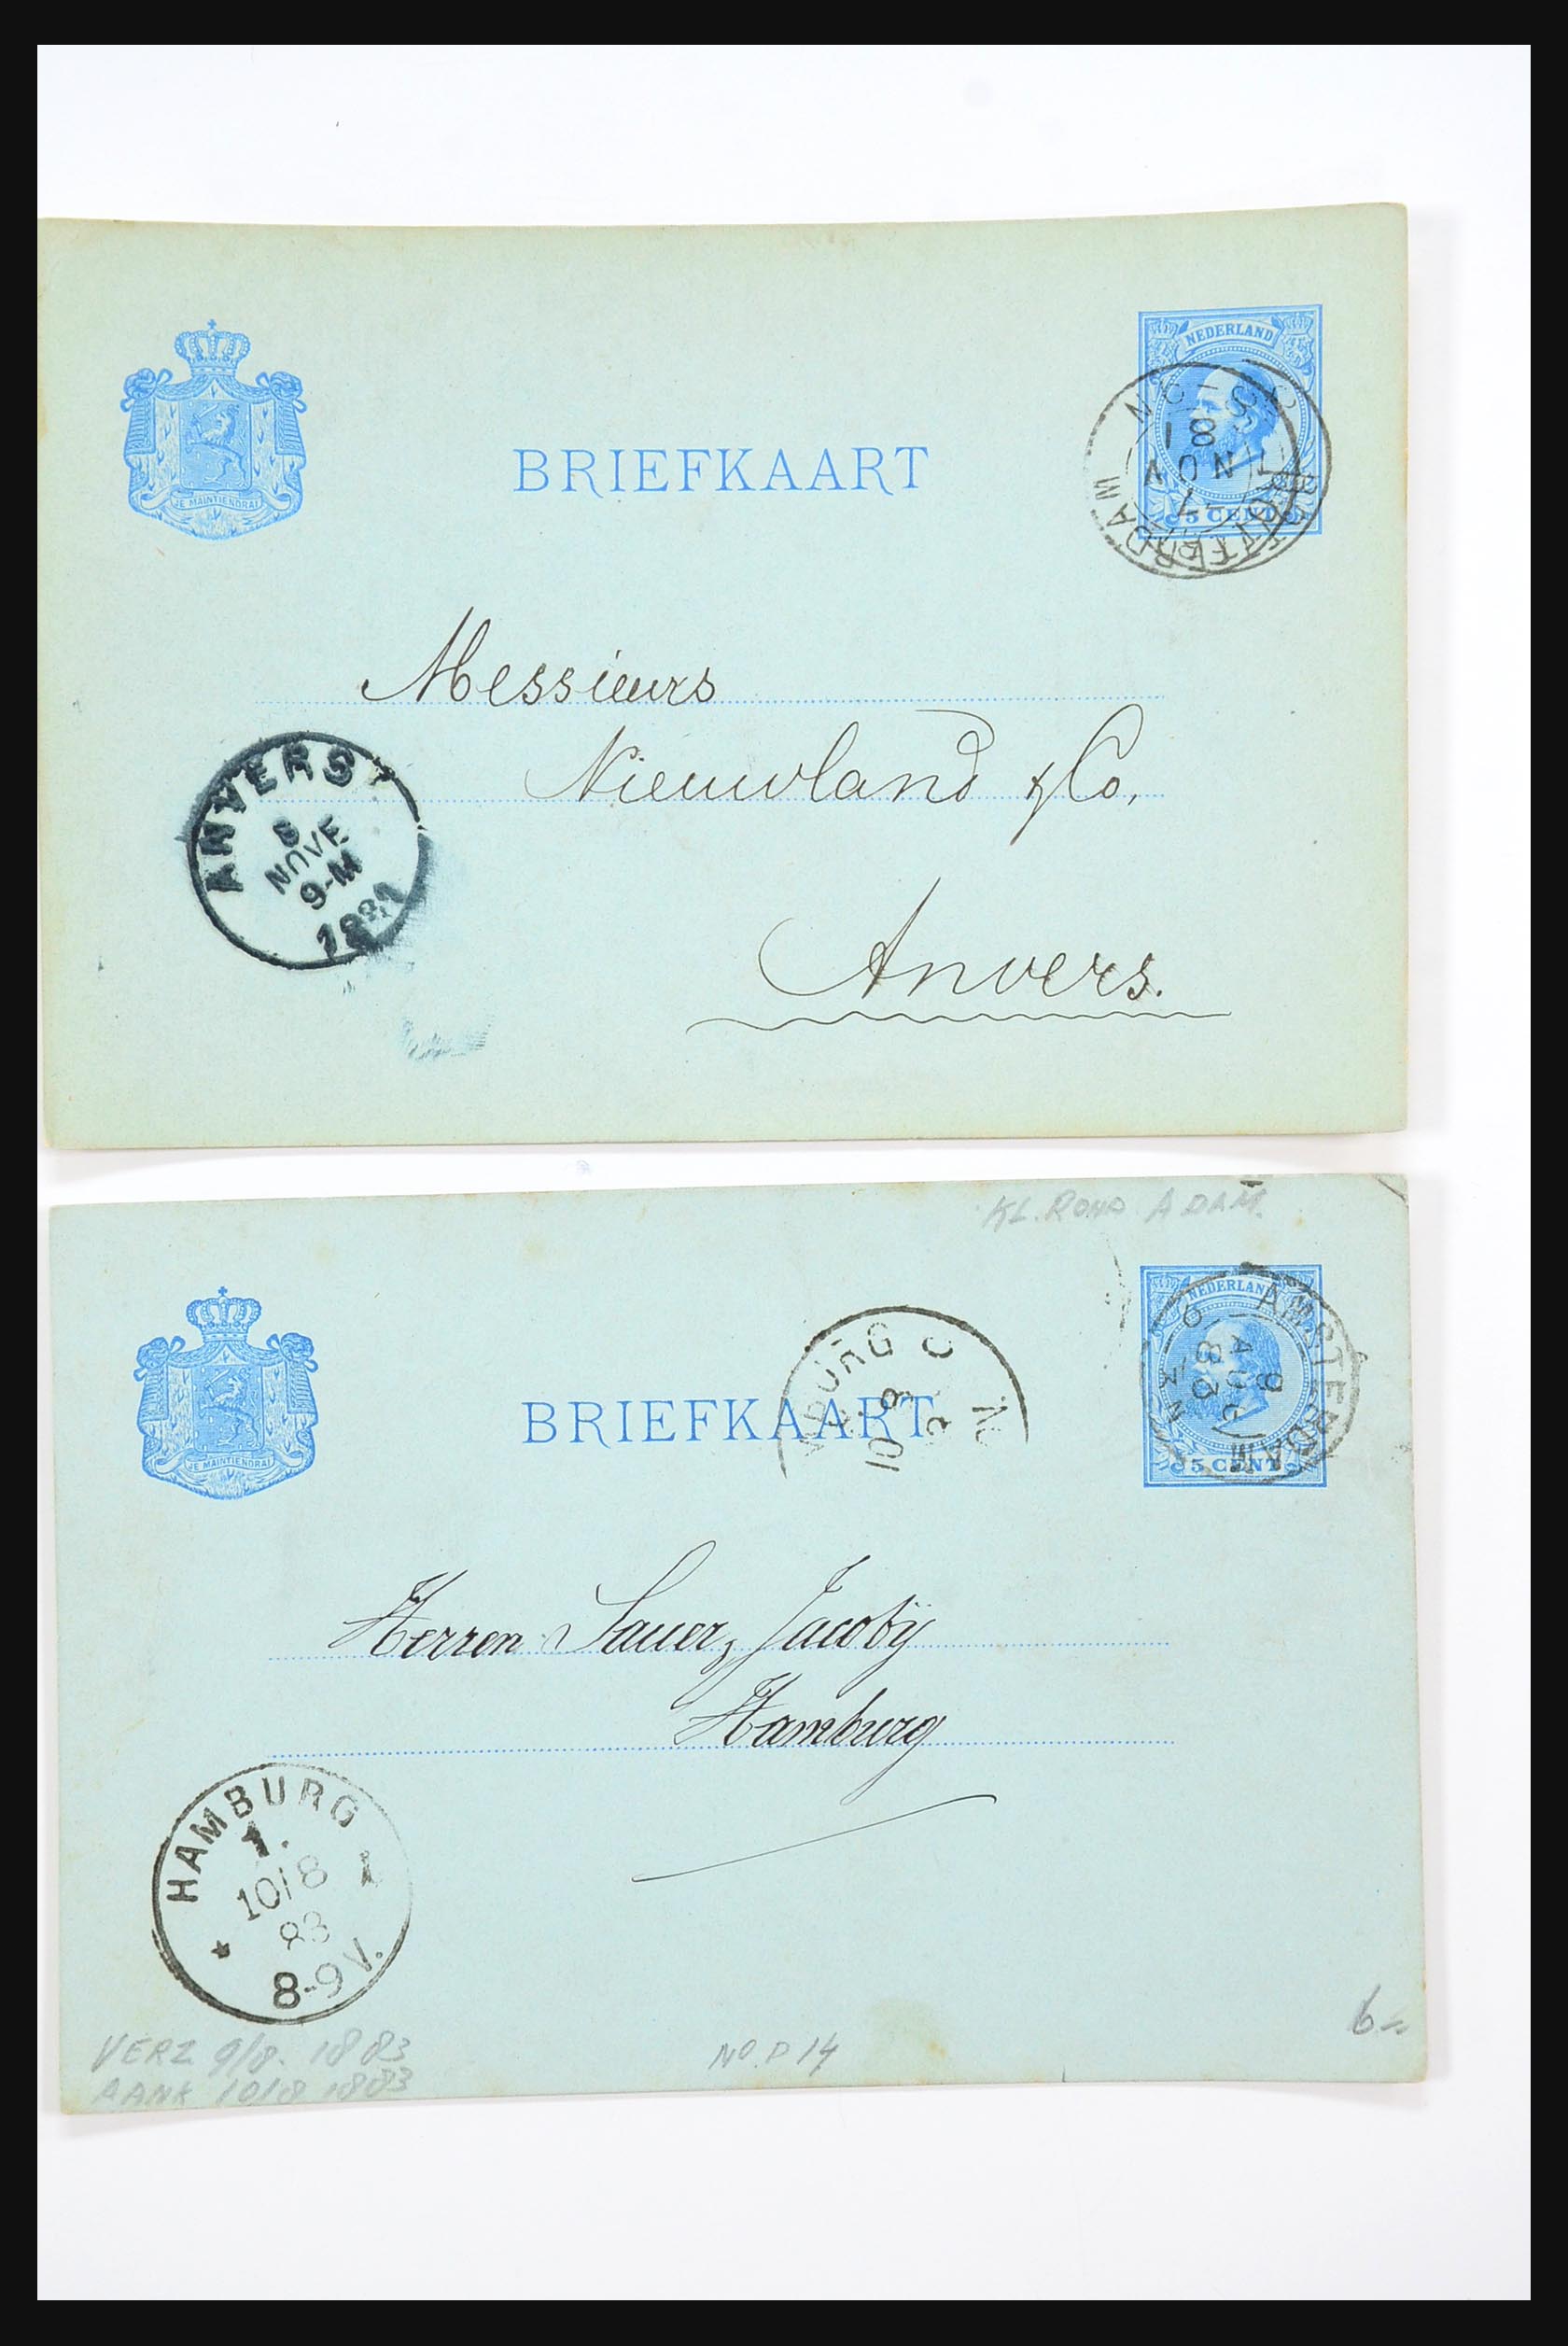 NEDERLAND
BRIEFKAART
JE MAINTIENDRAI
5 CENT
81
NOV
7
Messieurs
Nieuwland & Co.
ANVERS
8
NOVE
9-M
1881
Anvers.
KL. ROND ADAM.
NEDERLAND
AMSTERDAM
9
AUG
83
BRIEFKAART
JE MAINTIENDRAI
5 CENT
Herren Sauer, Jacobÿ
Hamburg
HAMBURG
1.
10/8
83
8-9V.
VERZ 9/8. 1883
AANK 10/8 1883
No. P 14
6=